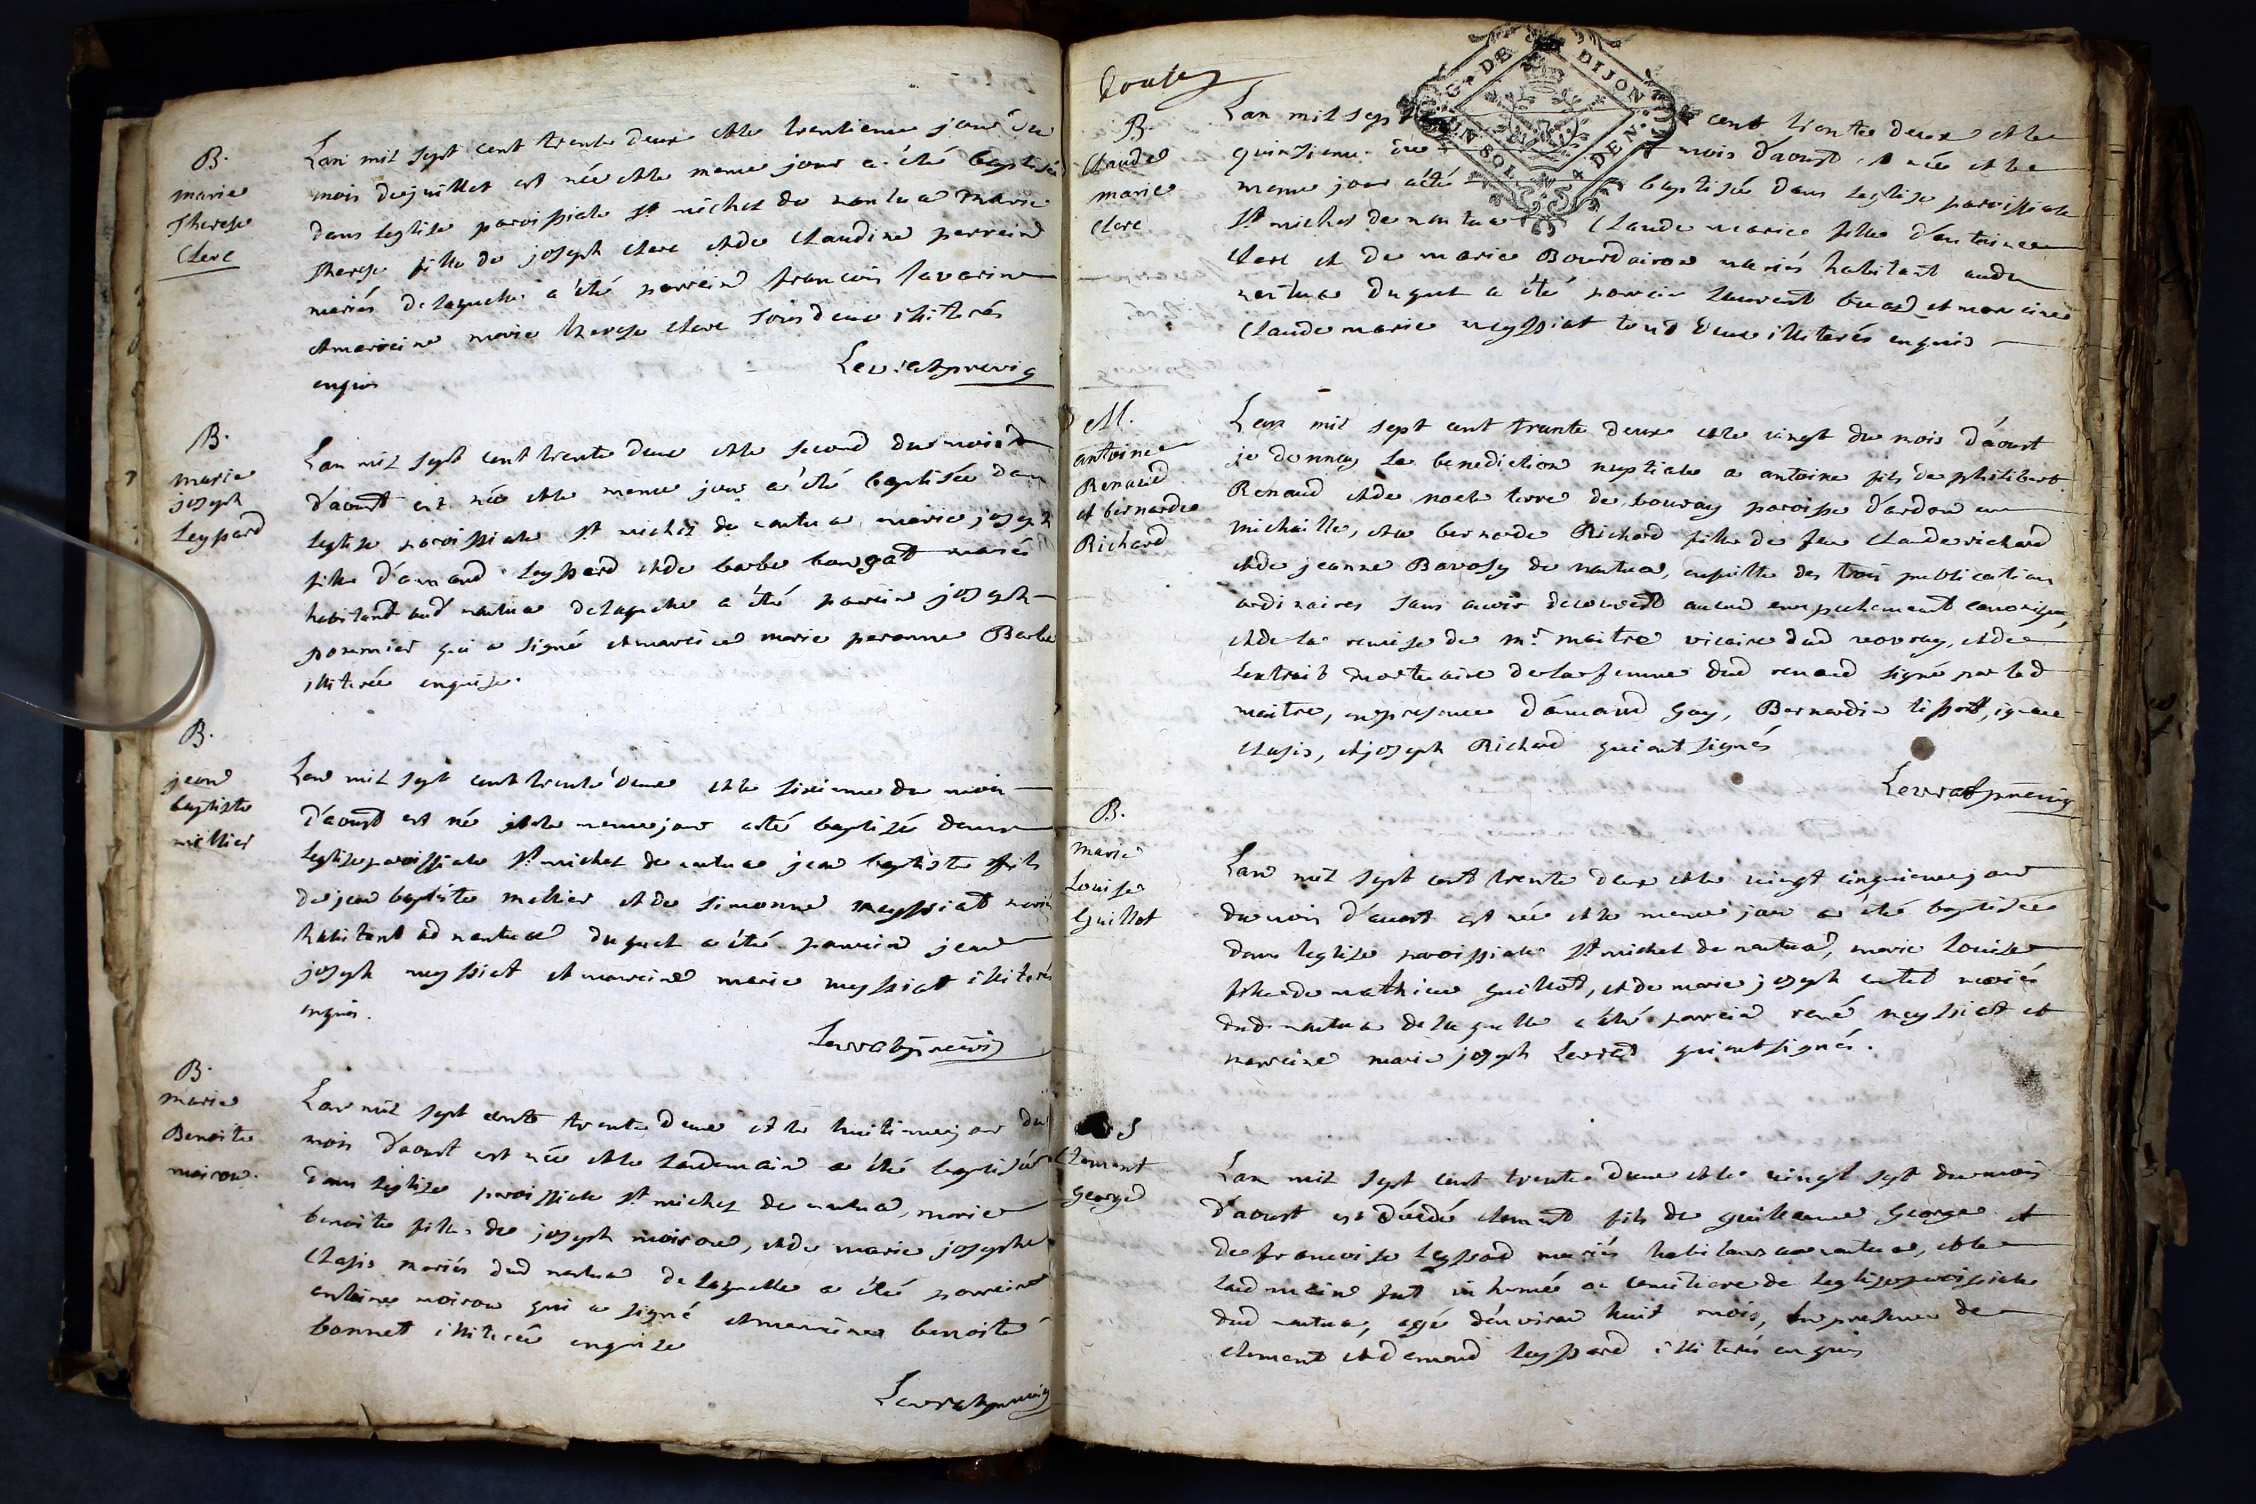 B.
marie
Therese
Clerc
Lan mil sept cent trente deux et le trentieme jour du
mois de juillet est née et le meme jour a été baptisée
dans leglise paroissiale st michel de nantua marie
therese fille de joseph clerc et de Claudine perrein
mariés de laquelle a été parrein francois savarin
et marreine marie therese clerc tous deux illiterés
enquis
B.
marie
joseph
Leyssard
Lan mil sept cent trente deux et le second du mois
d'aoust est née et le meme jour a été baptisée dans
leglise paroissiale st michel de nantua marie joseph
fille d'amand leyssard et de barbe mariés
habitant aud nantua de laquelle a été parrein joseph
pommier qui a signé et marreine marie Barbe
illiterée enquise.
B.
jean
baptiste
mellier
Lan mil sept cent trente deux et le sixieme du mois
d'aoust est né et le meme jour a été baptisé dans
leglise paroissiale st michel de nantua jean baptiste fils
de jean baptiste mellier et de simonne meyssiat mariés
habitant nantua duquel a été parrein jean
joseph meyssiat et marreine marie meyssiat illiterés
enquis.
B.
marie
Benoite
moirou.
Lan mil sept cent trente deux et le huitieme jour du
mois d'aoust est née et le landemain a été baptisée
dans leglise paroissiale st michel de nantua, marie
benoite fille de joseph moirou, et de marie josephe
Clasis mariés dud nantua de laquelle a été parrein
antoine moirou qui a signé et marreine benoite
bonnet illiterée enquise
B.
Claude
marie
Clerc
G.^R DE DIJON
UN SOL 4 DEN.
Lan mil sept cent trente deux et le
quinzieme du mois d'aoust est née et le
meme jour a été baptisée dans leglise paroissiale
st michel de nantua Claude marie fille d'antoine
clerc et de marie Bourdairon mariés habitant aud
nantua duquel a été parrein laurent et marreine
Claude marie meyssiat tous deux illiterés enquis
M.
antoine
Renaud
et bernarde
Richard
Lan mil sept cent trente deux et le vingt du mois d'aoust
je donnay la benediction nuptiale a antoine fils de philibert
Renaud et de terre de paroisse d'ardon en
michaille, et a bernarde Richard fille de feu Claude richard
et de jeanne Bavosy de nantua, ensuitte des trois publications
ordinaires sans avoir decouvert aucun empechement canonique,
et de la remise de mr maitre vicaire dud vouvray, et de
lextrait mortuaire de la femme dud renaud signé par led
maitre, en presence d'amand Gay, Bernardin tissot, ignace
clasis, et joseph Richard qui ont signés
B.
Marie
Louise
Guillot
Lan mil sept cent trente deux et le vingt cinquieme jour
du mois d'aoust est née et le meme jour a été baptisée
dans leglise paroissiale st michel de nantua, marie louise
fille de mathieu guillot, et de marie joseph mariés
dud nantua de laquelle a été parrein rené meyssiat et
marreine marie joseph Levrat qui ont signés.
S
Clement
George
Lan mil sept cent trente deux et le vingt sept du mois
d'aoust est décédé clement fils de guillaume George et
de francoise leyssard mariés habitans a nantua, et le
landemain fut inhumé au cemitiere de leglise paroissiale
dud nantua, agé d'environ huit mois, en presence de
clement et d'amand leyssard illiterés enquis